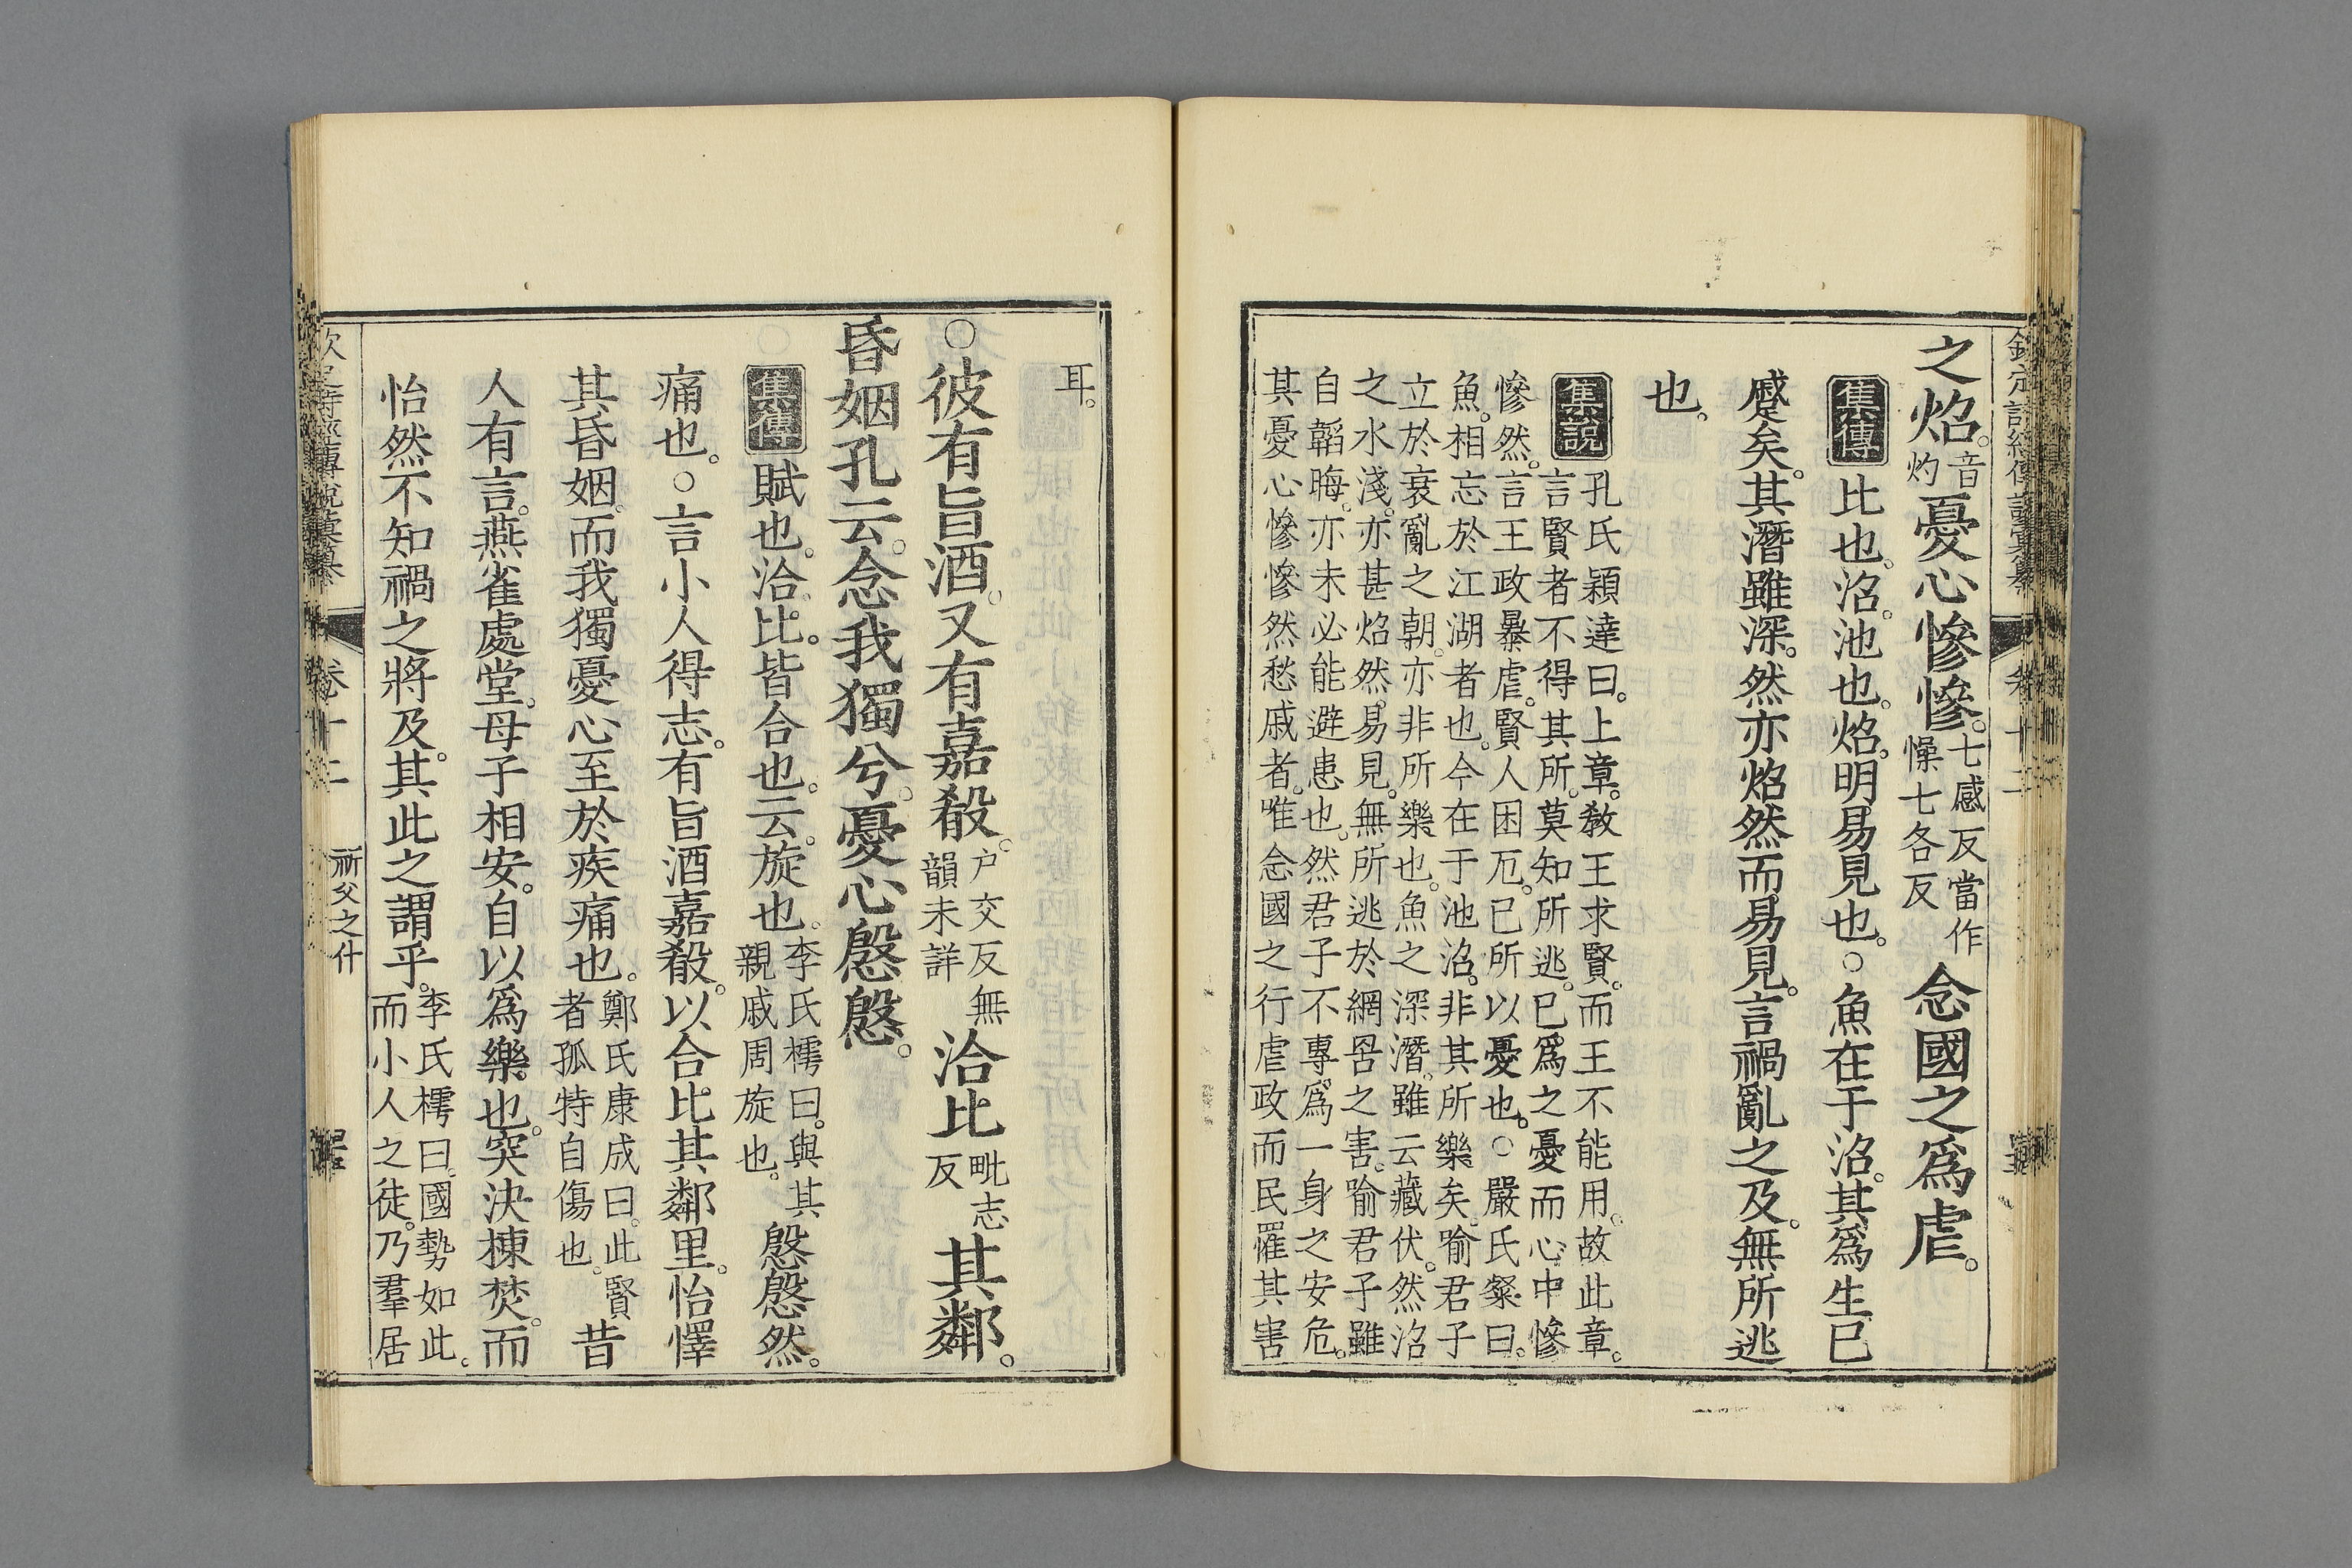 之炤。音灼憂心慘慘。七感反當作懆七各反念國之爲虐。
集傳比也。沼。池也。炤。明易見也。○魚在于沼。其爲生已
蹙矣。其潛雖深。然亦炤然而易見。言禍亂之及。無所逃
也。
集說孔氏穎達曰。上章。教王求賢。而王不能用。故此章。
言賢者不得其所。莫知所逃。已爲之憂而心中慘
慘然。言王政暴虐。賢人困厄。已所以憂也。○嚴氏粲曰。
魚。相忘於江湖者也。今在于池沼。非其所樂矣。喻君子
立於衰亂之朝。亦非所樂也。魚之深潛。雖云藏伏。然沼
之水淺。亦甚炤然。易見。無所逃於網罟之害。喻君子雖
自韜晦。亦未必能避患也。然君子不專。爲一身之安危。
其憂心慘慘然愁戚者。唯念國之行虐政而民罹其害
耳。
○彼有旨酒。又有嘉殽。户交反無韻未詳洽比毗志反其鄰。
昏姻孔云。念我獨兮。憂心慇慇。
集傳賦也。洽。比。皆合也。云。旋也。李氏樗曰。與其親戚周旋也。慇慇然。
痛也。○言小人得志。有旨酒嘉殽。以合比其鄰里。怡懌
其昏姻。而我獨憂心至於疾痛也。鄭氏康成曰。此賢者孤特自傷也。昔
人有言。燕雀處堂。母子相安。自以爲樂也。突決棟焚。而
怡然不知禍之將及。其此之謂乎。李氏樗曰。國勢如此。而小人之徒。乃羣居
卷十二
祈父之什